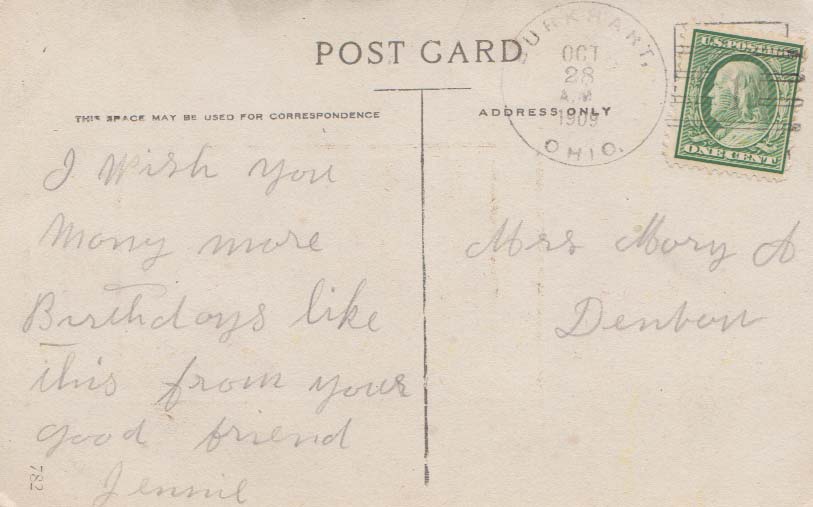 POST CARD
BURKHART,
OCT
28
A.M.
1909
OHIO.
U.S. POSTAGE
ONE CENT
THIS SPACE MAY BE USED FOR CORRESPONDENCE
ADDRESS ONLY
I Wish you
Many more
Birthdays like
this from your
good friend
Jennie
Mrs Mary A
Denbow
782